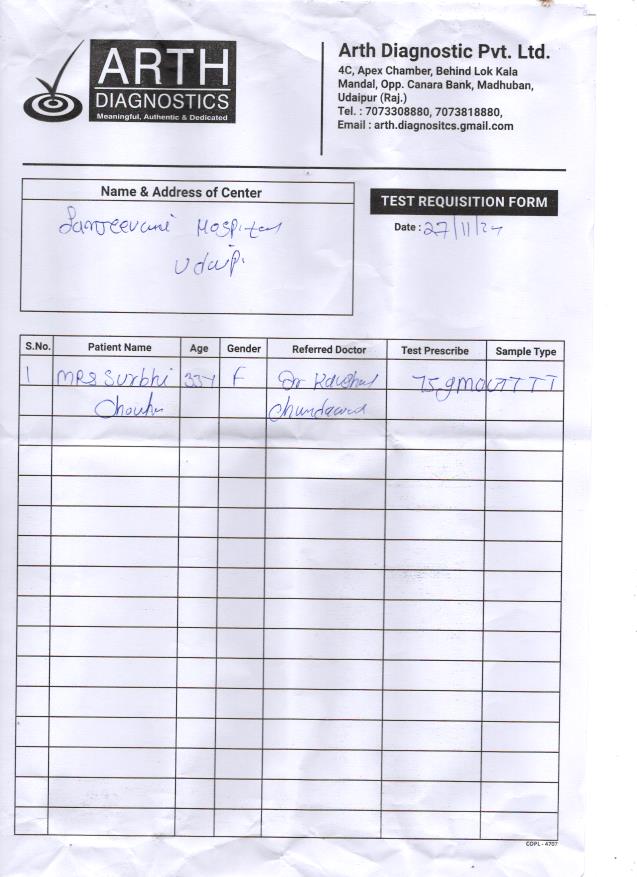 ARTH
DIAGNOSTICS
Meaningful, Authentic & Dedicated
Arth Diagnostic Pvt. Ltd.
4C, Apex Chamber, Behind Lok Kala
Mandal, Opp. Canara Bank, Madhuban,
Udaipur (Raj.)
Tel. : 7073308880, 7073818880,
Email : arth.diagnositcs.gmail.com
Name & Address of Center
Hospital
TEST REQUISITION FORM
Date : 27/11/24
S.No. Patient Name Age Gender Referred Doctor Test Prescribe Sample Type
1 MRS Surbhi 33Y F Dr 75 gm
COPL - 4707